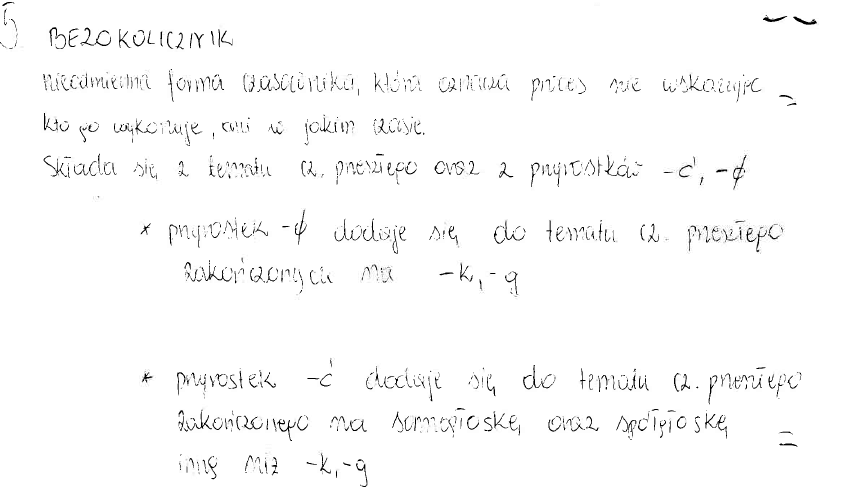 5 BEZOKOLICZNIK
nieodmienna forma czasownika, która oznacza proces nie wskazując
kto go wykonuje, ani w jakim czasie.
Składa się z tematu cz. przeszłego oraz z przyrostków -ć, -ϕ
* przyrostek -ϕ dodaje się do tematu cz. przeszłego
zakończonych na -k, -g
* przyrostek -ć dodaje się do tematu cz. przeszłego
zakończonego na samogłoskę oraz spółgłoskę
inną niż -k, -g